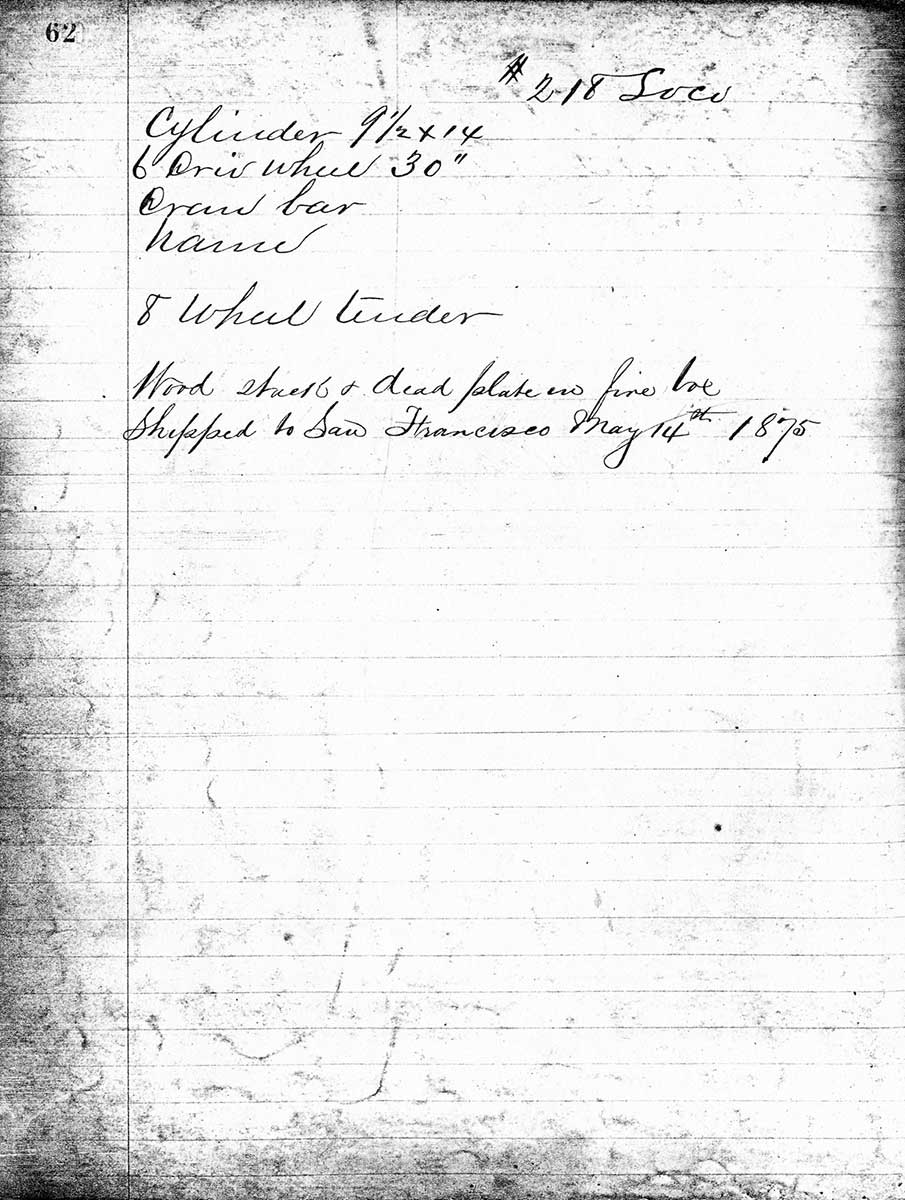 62
# 218 Loco
Cylinder 9 1/2 x 14
6 Driv Wheel 30"
Draw bar
Name
8 Wheel tender
Wood stack & dead plate in fire box
Shipped to San Francisco May 14th 1875